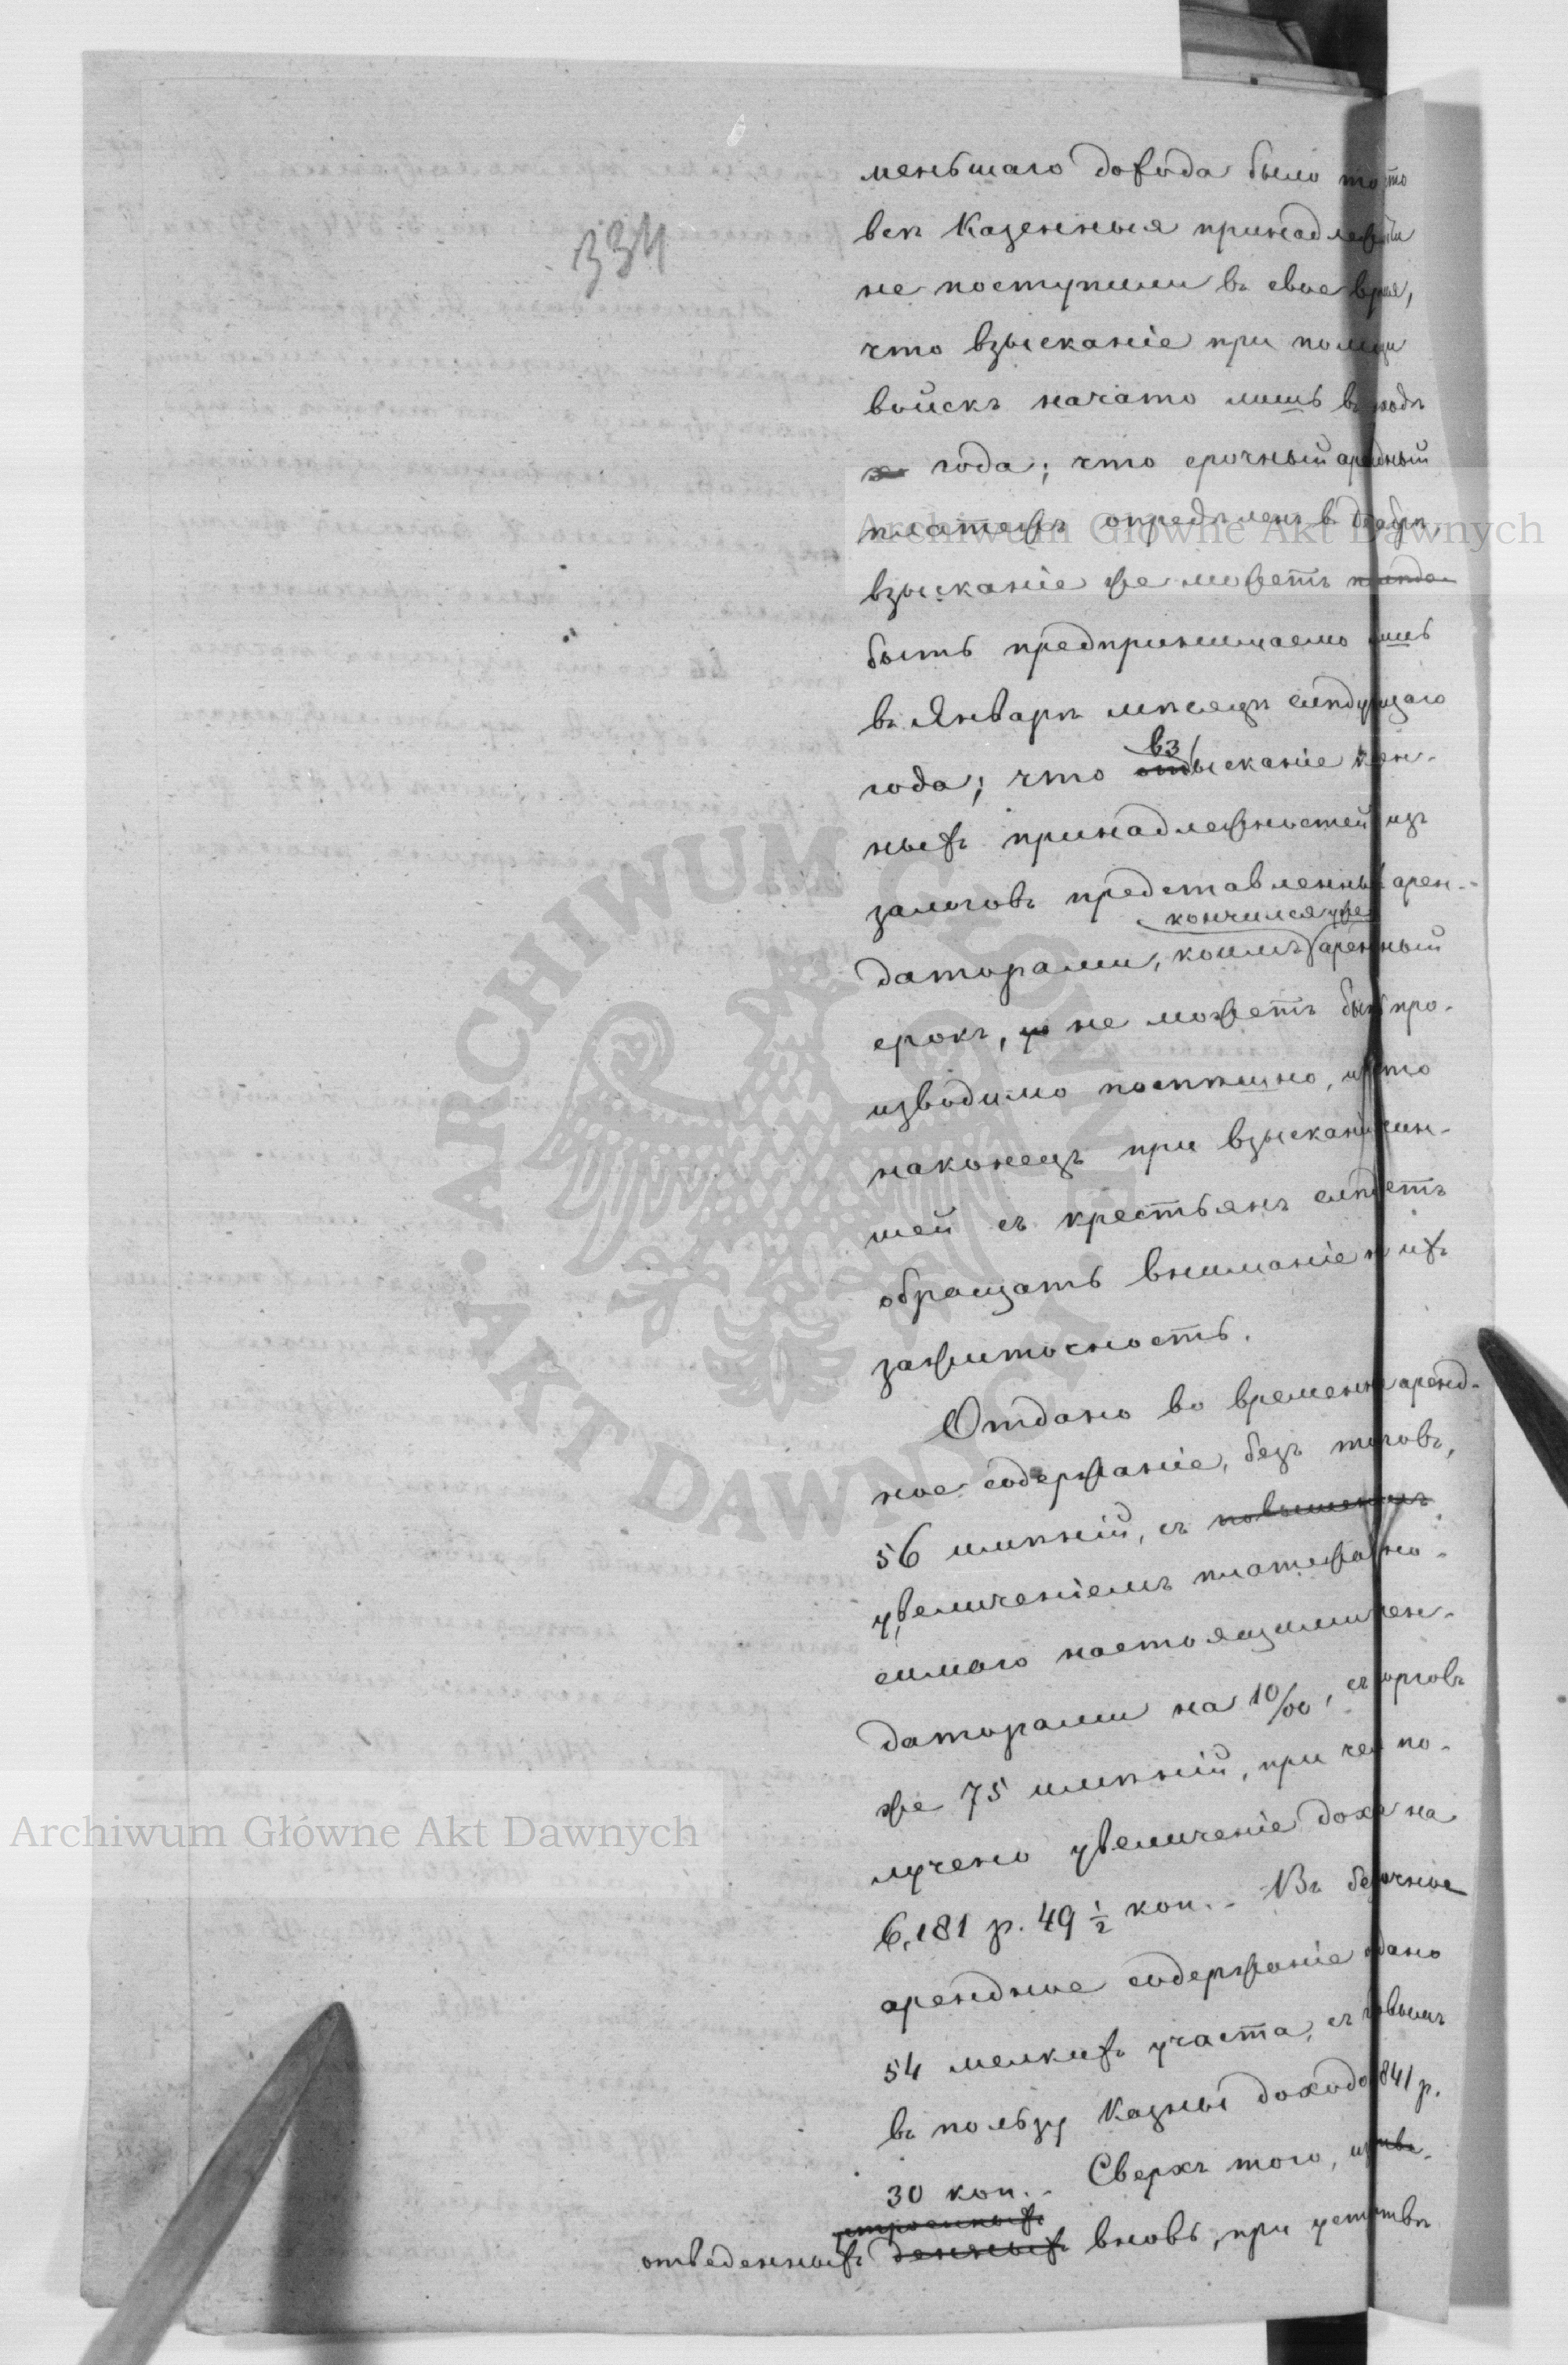 334
меньшаго дохода было то что
всѣ Казенныя принадлежности
не поступили въ свое время,
что взысканіе при помощи
войскъ начато лишь въ
года; что срочный арендный
платежъ опредѣленъ въ Декабрѣ,
взысканіе же можетъ
быть предпринимаемо лишь
въ Январѣ мѣсяцѣ слѣдующаго
года; что взысканіе казен-
ныхъ принадлежностей изъ
залоговъ представленныхъ арен-
кончился уже
даторами, коимъ арендный
срокъ, не можетъ быть про-
изводимо поспѣшно, и что
наконецъ при взысканіи чин-
шей съ крестьянъ слѣдуетъ
обращать вниманіе на ихъ
зажиточность.
Отдано во временное аренд-
ное содержаніе, безъ торговъ,
56 имѣній, съ повышеніемъ
увеличеніемъ платежа вно-
симаго настоящими арен-
даторами на 10%, съ торговъ
же 75 имѣній, при чемъ по-
лучено увеличеніе дохода на
6,181 р. 49 ½ коп. Въ безсрочное
арендное содержаніе отдано
54 мелкихъ участка, съ новымъ
въ пользу Казны доходомъ 841 р.
30 коп. Сверхъ того, изъ
устроенныхъ
отведенныхъ вновь, при устройствѣ
Archiwum Główne Akt Dawnych
Archiwum Główne Akt Dawnych
ARCHIWUM GŁÓWNE AKT DAWNYCH